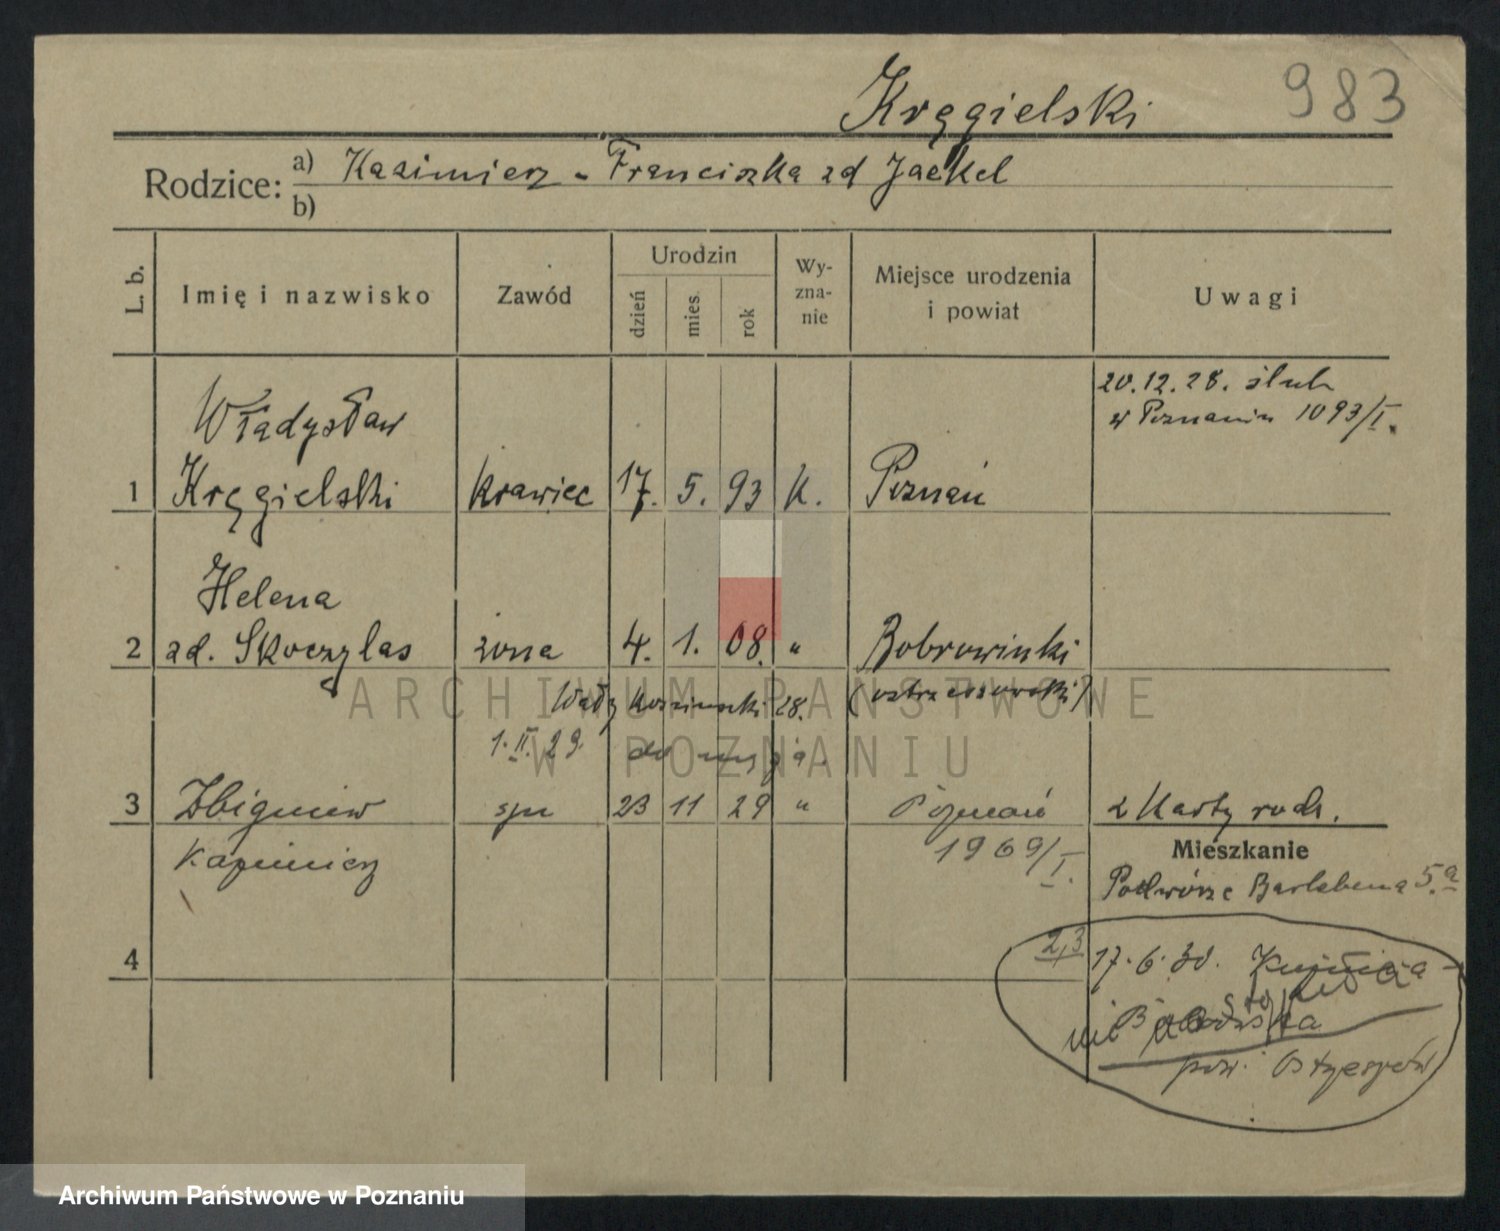 983
Kręgielski
Rodzice: a) Kazimierz - Franciszka zd Jaekel
b)
L. b.
Imię i nazwisko
Zawód
Urodzin
dzień
mies.
rok
Wy-
zna-
nie
Miejsce urodzenia
i powiat
Uwagi
20.12.28. ślub
w Poznaniu 1093/I.
Władysław
1 Kręgielski krawiec 17. 5. 93 K. Poznań
Helena
2 zd. Skoczylas żona 4. 1. 08. " Bobrowniki
(ostrzeszowski)
28.
1.II.29 do męża
3 Zbigniew syn 23 11 29 " Poznań 2 Karty rodz.
Kazimierz 1969/I.
Mieszkanie
Podwórze Bartebena 5.a
4
2,3 17.6.30.
nie
pow. Ostrzeszów
ARCHIWUM PAŃSTWOWE
W POZNANIU
Archiwum Państwowe w Poznaniu